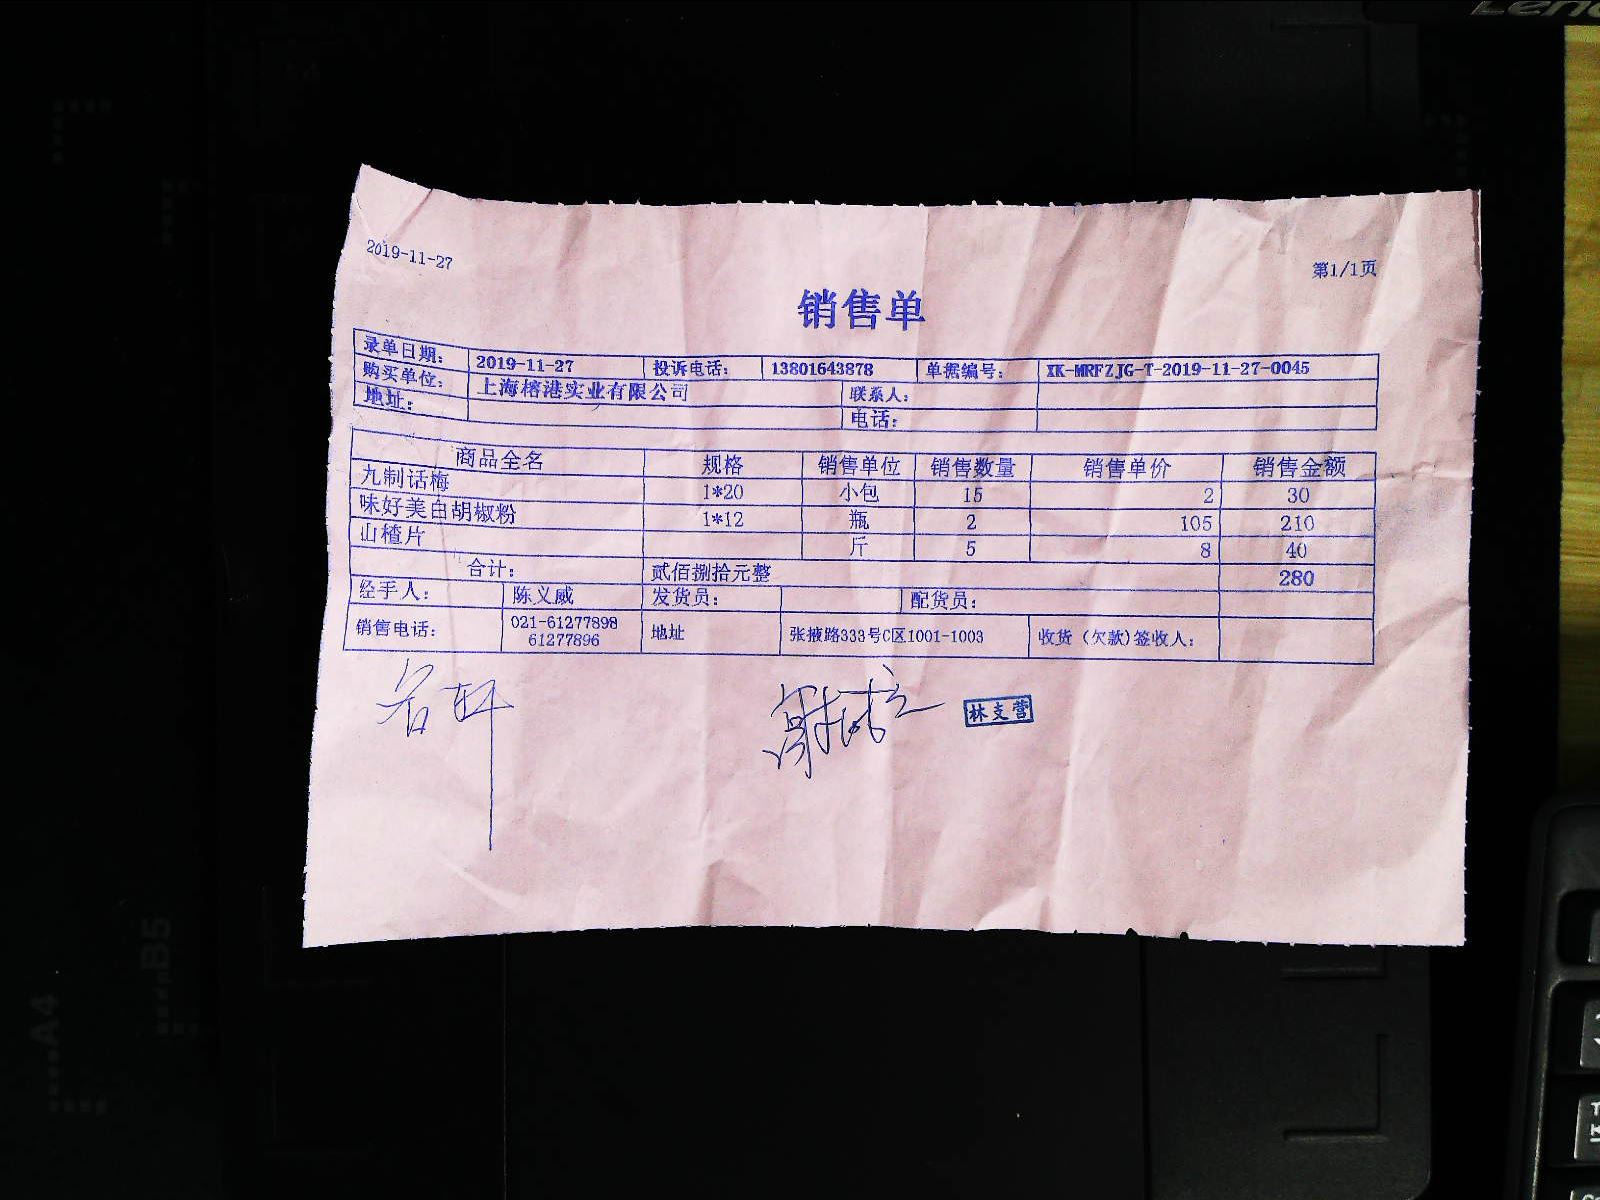 2019-11-27
第1/1页
销售单
录单日期: 2019-11-27 投诉电话: 13801643878 单据编号: XK-MRFZJG-T-2019-11-27-0045
购买单位: 上海榕港实业有限公司 联系人:
地址: 电话:
商品全名 规格 销售单位 销售数量 销售单价 销售金额
九制话梅 1*20 小包 15 2 30
味好美白胡椒粉 1*12 瓶 2 105 210
山楂片 斤 5 8 40
合计: 贰佰捌拾元整 280
经手人: 陈义威 发货员: 配货员:
销售电话: 021-61277898 61277896 地址 张掖路333号C区1001-1003 收货(欠款)签收人:
林支营
A4
B5